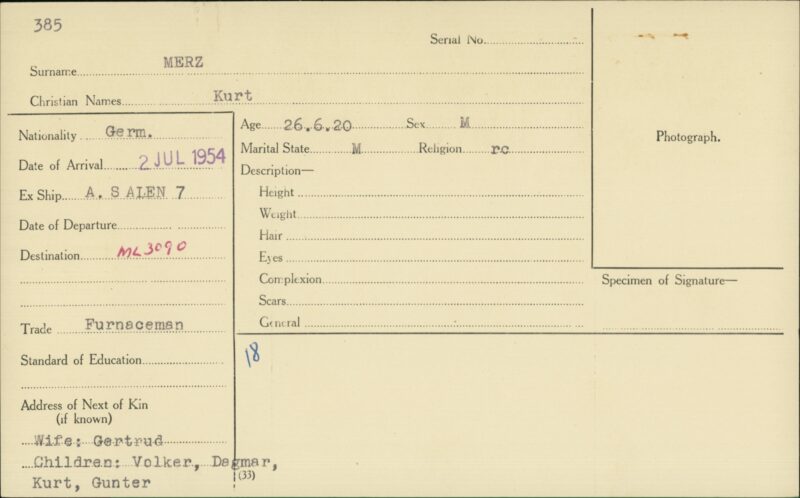 385
Serial No.
Surname MERZ
Christian Names Kurt
Nationality Germ.
Date of Arrival 2 JUL 1954
Ex Ship A. SALEN 7
Date of Departure
Destination ML3090
Trade Furnaceman
Standard of Education
Address of Next of Kin
(if known)
Wife: Gertrud
Children: Volker, Dagmar,
Kurt, Gunter
Age 26.6.20 Sex M
Marital State M Religion rc
Description—
Height
Weight
Hair
Eyes
Complexion
Scars
General
18
(33)
Photograph.
Specimen of Signature—